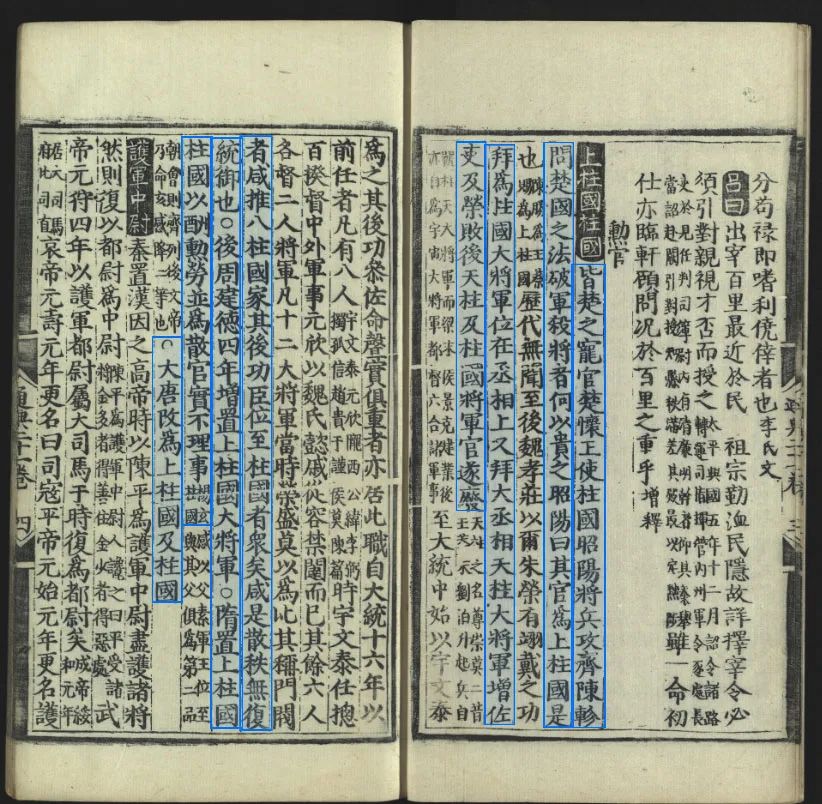 分苟祿即嗜利僥倖者也李氏文
呂曰出宰百里最近於民 祖宗勤恤民隱故詳擇宰令必
須引對親視才否而授之
仕亦臨軒顧問況於百里之重乎增釋
勳官
上柱國柱國皆楚之寵官楚懷王使柱國昭陽將兵攻齊陳軫
問楚國之法破軍殺將者何以貴之昭陽曰其官為上柱國是
也歷代無聞至後魏孝莊以爾朱榮有翊戴之功
拜為柱國大將軍位在丞相上又拜大丞相天柱大將軍增佐
吏及榮敗後天柱及柱國將軍官遂廢
至大統中始以宇文泰
為之其後功參佐命聲實俱重者亦居此職自大統十六年以
前任者凡有八人宇文泰元欣隴西公緯李弼獨孤信趙貴于謹侯莫陳崇時宇文泰任摠
百揆督中外軍事元欣以魏氏懿戚從容禁闈而已其餘六人
各督二人將軍凡十二大將軍當時榮盛莫以為比其稱門閥
者咸推八柱國家其後功臣位至柱國者眾矣咸是散秩無復
統御也○後周建德四年增置上柱國大將軍○隋置上柱國
柱國以酬勳勞並為散官實不理事
○大唐改為上柱國及柱國
護軍中尉秦置漢因之高帝時以陳平為護軍中尉盡護諸將
然則復以都尉為中尉陳平為護軍中尉人讒之曰平受諸將金多者得善處金少者得惡處武
帝元狩四年以護軍都尉屬大司馬于時復為都尉矣
哀帝元壽元年更名曰司寇平帝元始元年更名護
通典二十卷 四